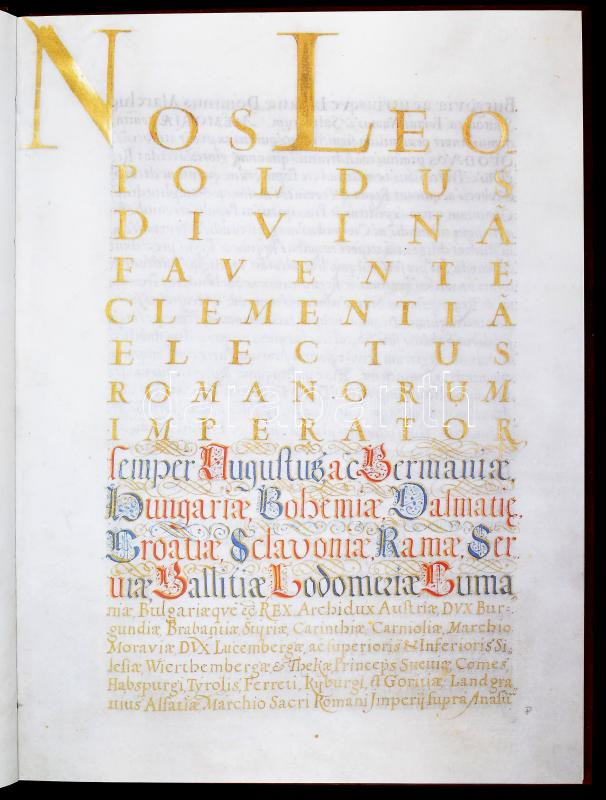 NOS LEO
POLDUS
DIVINA
FAVENTE
CLEMENTIA
ELECTUS
ROMANORUM
IMPERATOR
semper Augustus ac Germaniæ,
Hungariæ, Bohemiæ, Dalmatię,
Croatiæ, Sclavoniæ, Ramæ, Ser
viæ Gallitiæ Lodomeriæ Cuma
niæ, Bulgariæqve &c̃ REX. Archidux Austriæ, DVX Bur-
gundiæ, Brabantiæ, Styriæ, Carinthiæ, Carnioliæ, Marchio
Moraviæ DVX Lucembergæ, ac superioris & Inferioris Si-
lesiæ, Wierthembergæ & Thekæ, Princeps Sueviæ, Comes
Habspurgi, Tyrolis, Ferreti, Kyburgi, et Goritiæ, Landgra
vius Alsatiæ Marchio Sacri Romani Imperij supra Anasū
darabanth